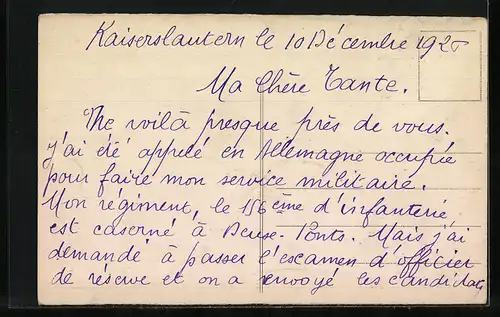 Kaiserslautern le 10 Décembre 192
Ma Chère Tante.
Me voilà presque près de vous.
J'ai été appelé en Allemagne occupée
pour faire mon service militaire.
Mon régiment, le 156 ème d'infanterie,
est caserné à Deux-Ponts. Mais j'ai
demandé à passer l'examen d'officier
de réserve et on a envoyé les candidats